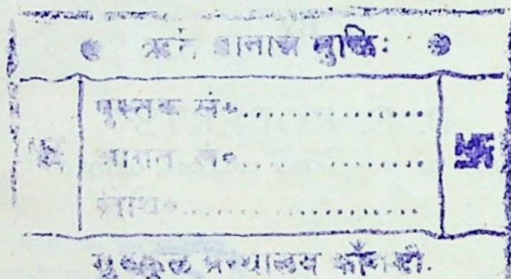 ऋते ज्ञानान्न मुक्तिः
पुस्तक सं०................
आगत सं०................
गुरुकुल ग्रन्थालय काँगड़ी.